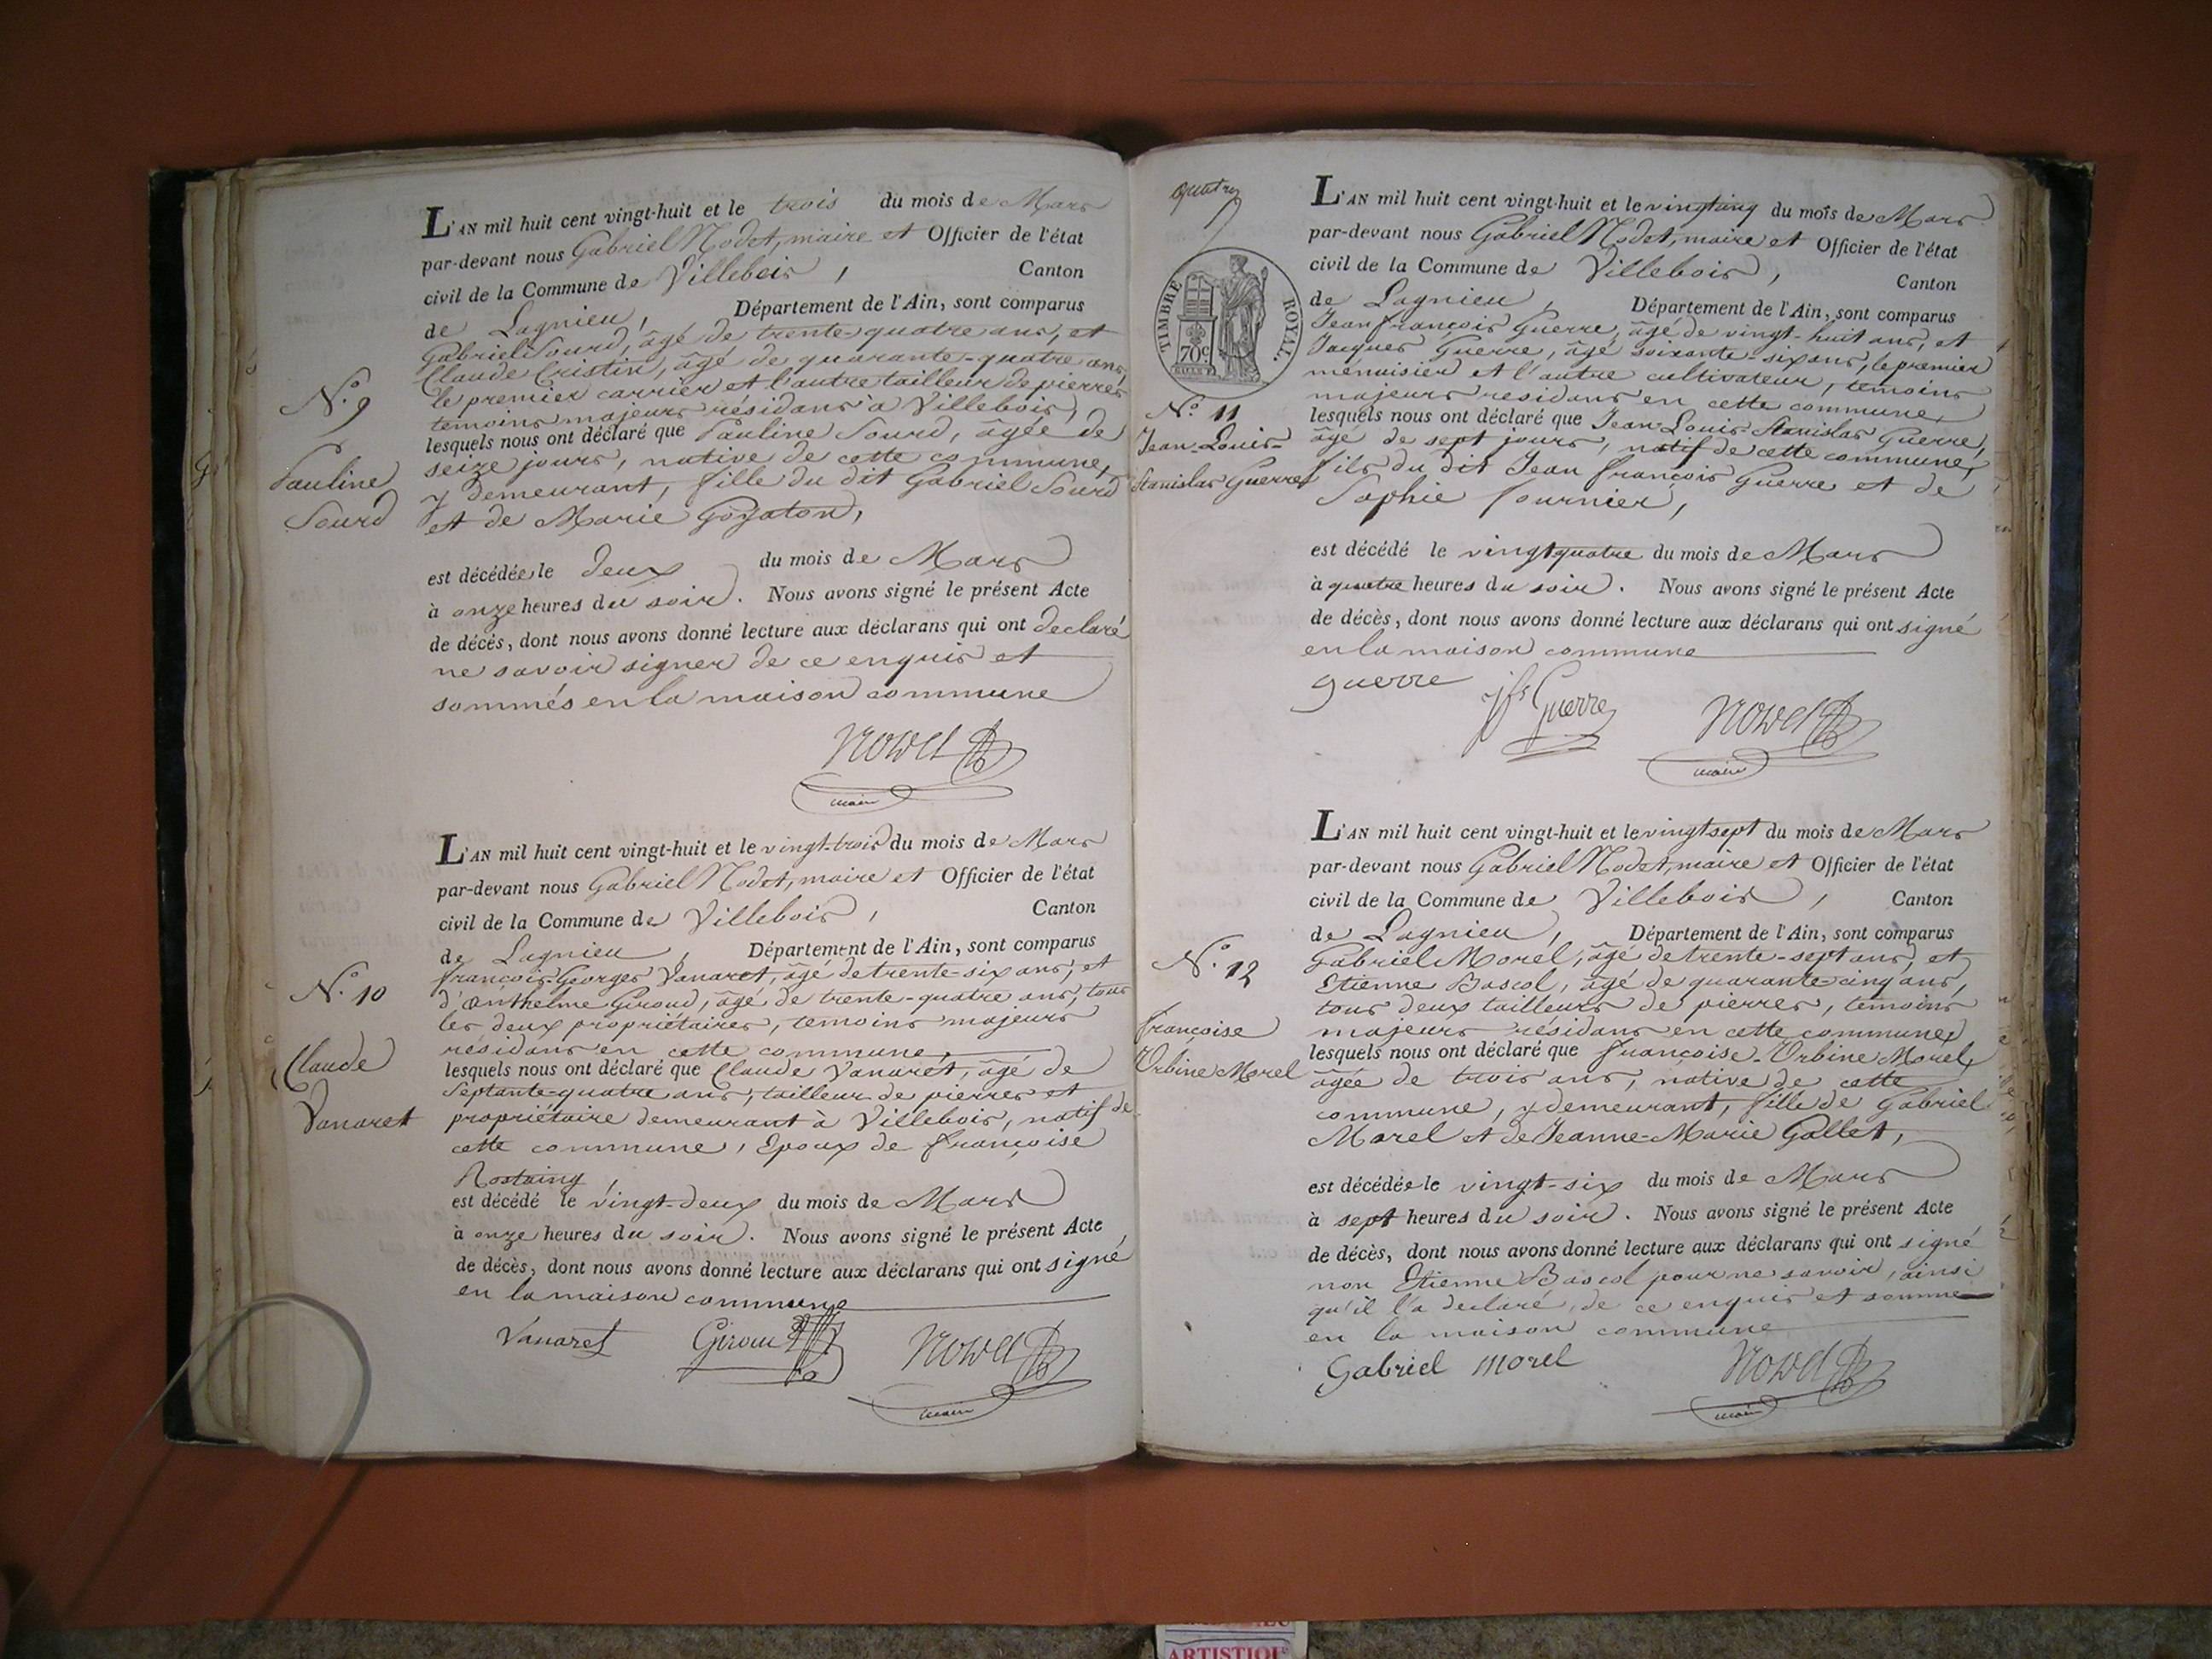 L'AN mil huit cent vingt-huit et le trois du mois de Mars
par-devant nous Gabriel Nodet, maire et Officier de l'état
civil de la Commune de Villebois, Canton
de Lagnieu, Département de l'Ain, sont comparus
Gabriel Sourd, âgé de trente-quatre ans, et
Claude Cristin, âgé de quarante-quatre ans,
le premier carrier et l'autre tailleur de pierres
témoins majeurs résidans à Villebois,
N.º 9
Pauline
Sourd
lesquels nous ont déclaré que Pauline Sourd, âgée de
seize jours, native de cette commune,
y demeurant, fille du dit Gabriel Sourd
et de Marie Goyaton,
est décédée le deux du mois de Mars
à onze heures du soir. Nous avons signé le présent Acte
de décès, dont nous avons donné lecture aux déclarans qui ont declaré
ne savoir signer de ce enquis et
sommés en la maison commune
Nodet
maire
L'AN mil huit cent vingt-huit et le vingt-trois du mois de Mars
par-devant nous Gabriel Nodet, maire et Officier de l'état
civil de la Commune de Villebois, Canton
de Lagnieu, Département de l'Ain, sont comparus
françois-Georges Vanaret, âgé de trente-six ans, et
d'anthelme Giroud, âgé de trente-quatre ans, tous
les deux propriétaires, temoins majeurs
résidans en cette commune,
N.º 10
Claude
Vanaret
lesquels nous ont déclaré que Claude Vanaret, âgé de
septante-quatre ans, tailleur de pierres et
propriétaire demeurant à Villebois, natif de
cette commune, Epoux de françoise
Rostaing,
est décédé le vingt-deux du mois de Mars
à onze heures du soir. Nous avons signé le présent Acte
de décès, dont nous avons donné lecture aux déclarans qui ont signé
en la maison commune
Vanaret Giroud Nodet
maire
quatre
TIMBRE ROYAL.
70c
L'AN mil huit cent vingt-huit et le vingtcinq du mois de Mars
par-devant nous Gabriel Nodet, maire et Officier de l'état
civil de la Commune de Villebois, Canton
de Lagnieu, Département de l'Ain, sont comparus
Jean françois Guerre, âgé de vingt-huit ans, et
Jacques Guerre, âgé soixante-six ans, le premier
menuisier et l'autre cultivateur, témoins
majeurs residans en cette commune,
N.º 11
Jean-Louis-
Stanislas Guerre
lesquels nous ont déclaré que Jean-Louis-Stanislas Guerre,
âgé de sept jours, natif de cette commune,
fils du dit Jean françois Guerre et de
Sophie fournier,
est décédé le vingtquatre du mois de Mars
à quatre heures du soir. Nous avons signé le présent Acte
de décès, dont nous avons donné lecture aux déclarans qui ont signé
en la maison commune
guerre jfs Guerre Nodet
maire
L'AN mil huit cent vingt-huit et le vingtsept du mois de Mars
par-devant nous Gabriel Nodet, maire et Officier de l'état
civil de la Commune de Villebois, Canton
de Lagnieu, Département de l'Ain, sont comparus
Gabriel Morel, âgé de trente-sept ans, et
Etienne Bascol, âgé de quarante-cinq ans,
tous deux tailleurs de pierres, témoins
majeurs résidans en cette commune,
N.º 12
françoise
Urbine Morel
lesquels nous ont déclaré que françoise-Urbine Morel,
âgée de trois ans, native de cette
commune, y demeurant, fille de Gabriel
Morel et de Jeanne-Marie Gallet,
est décédée le vingt-six du mois de Mars
à sept heures du soir. Nous avons signé le présent Acte
de décès, dont nous avons donné lecture aux déclarans qui ont signé
non Etienne Bascol pour ne savoir, ainsi
qu'il l'a declaré, de ce enquis et sommé
en la maison commune
Gabriel morel Nodet
maire
ARTISTIQUE